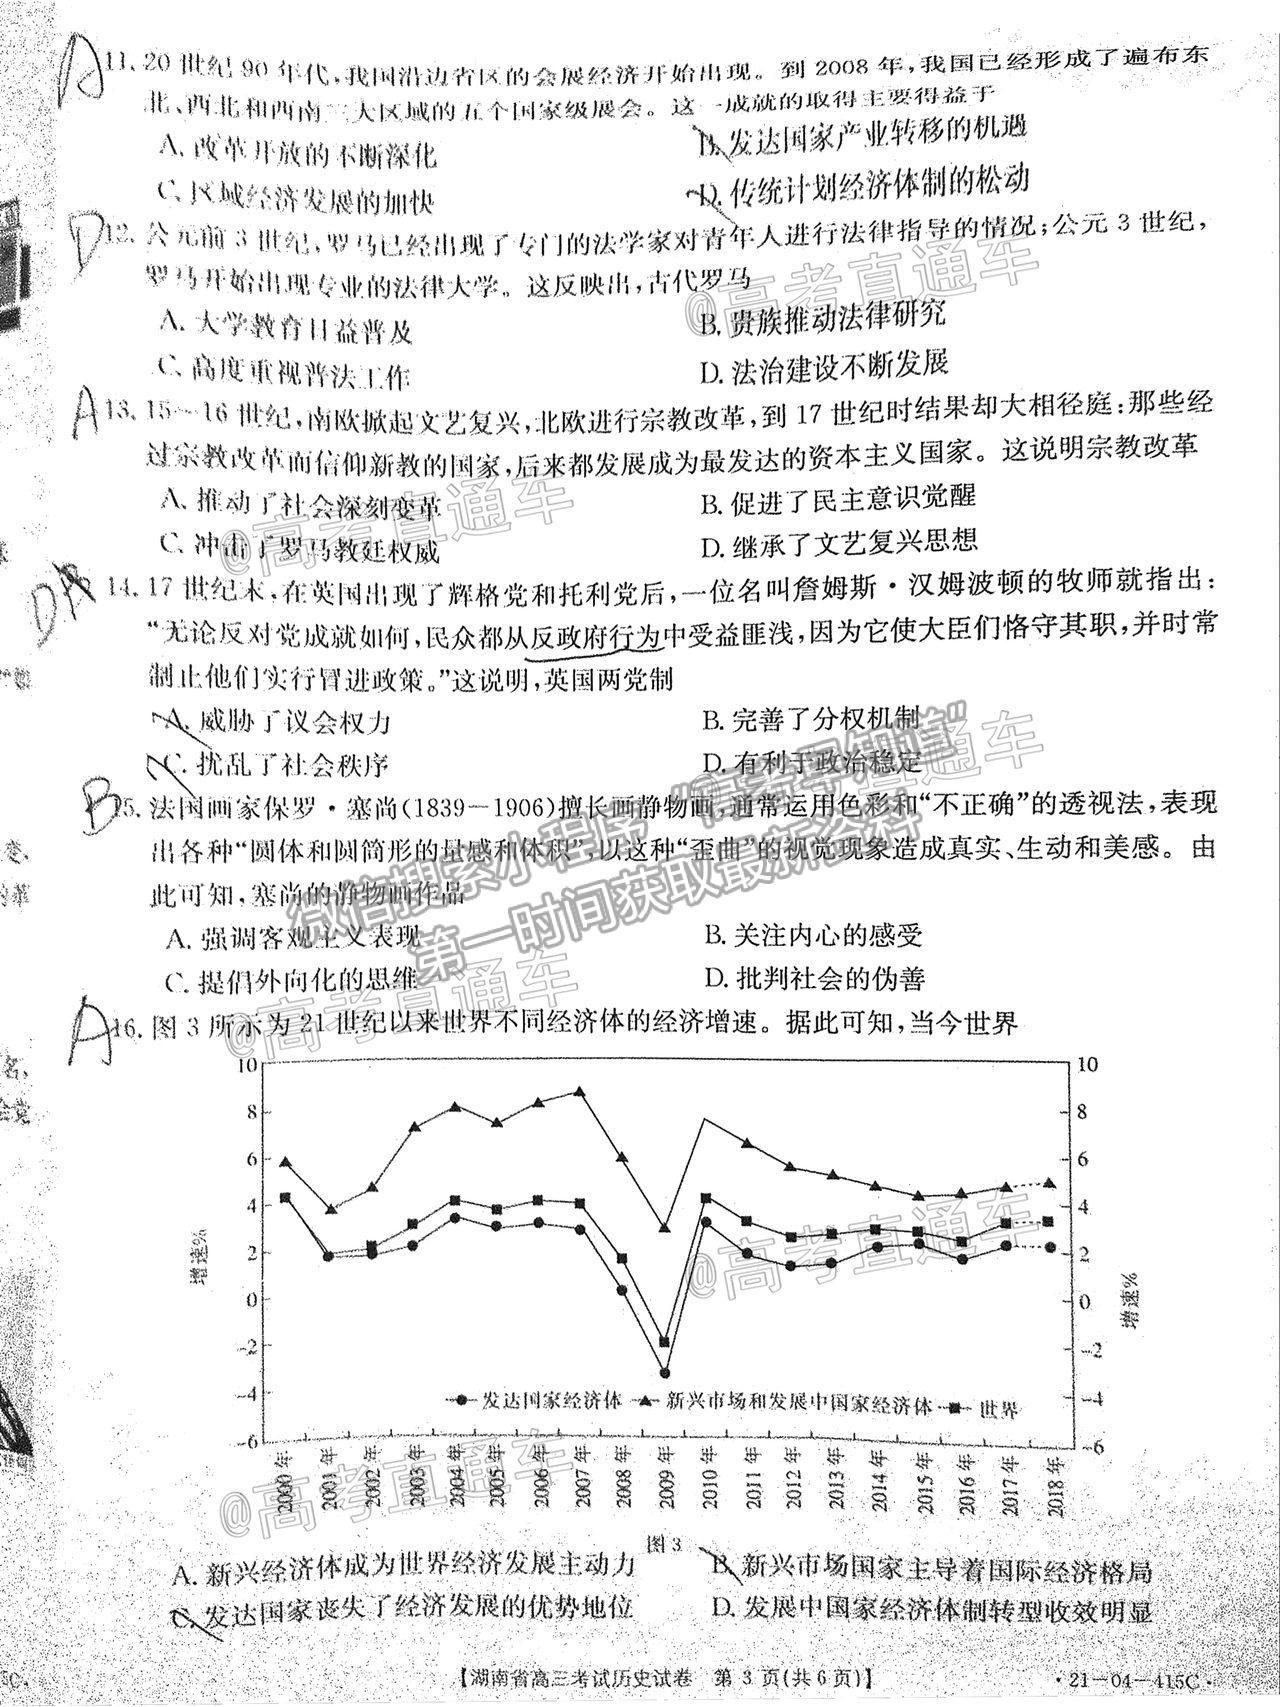 A
11. 20 世纪 90 年代,我国沿边省区的会展经济开始出现。到 2008 年,我国已经形成了遍布东
北、西北和西南三大区域的五个国家级展会。这一成就的取得主要得益于
A. 改革开放的不断深化 B. 发达国家产业转移的机遇
C. 区域经济发展的加快 D. 传统计划经济体制的松动
D
12. 公元前 3 世纪,罗马已经出现了专门的法学家对青年人进行法律指导的情况;公元 3 世纪,
罗马开始出现专业的法律大学。这反映出,古代罗马
@高考直通车
A. 大学教育日益普及 B. 贵族推动法律研究
C. 高度重视普法工作 D. 法治建设不断发展
A
13. 15～16 世纪,南欧掀起文艺复兴,北欧进行宗教改革,到 17 世纪时结果却大相径庭:那些经
过宗教改革而信仰新教的国家,后来都发展成为最发达的资本主义国家。这说明宗教改革
A. 推动了社会深刻变革 B. 促进了民主意识觉醒
@高考直通车
C. 冲击了罗马教廷权威 D. 继承了文艺复兴思想
D
14. 17 世纪末,在英国出现了辉格党和托利党后,一位名叫詹姆斯·汉姆波顿的牧师就指出:
“无论反对党成就如何,民众都从反政府行为中受益匪浅,因为它使大臣们恪守其职,并时常
制止他们实行冒进政策。”这说明,英国两党制
A. 威胁了议会权力 B. 完善了分权机制
C. 扰乱了社会秩序 D. 有利于政治稳定
B
15. 法国画家保罗·塞尚(1839—1906)擅长画静物画,通常运用色彩和“不正确”的透视法,表现
出各种“圆体和圆筒形的量感和体积”,以这种“歪曲”的视觉现象造成真实、生动和美感。由
此可知,塞尚的静物画作品
微信搜索小程序“高考早知道”
第一时间获取最新资料
A. 强调客观主义表现 B. 关注内心的感受
C. 提倡外向化的思维 D. 批判社会的伪善
@高考直通车
A
16. 图 3 所示为 21 世纪以来世界不同经济体的经济增速。据此可知,当今世界
10 10
8 8
6 6
4 4
2 2
0 0
-2 -2
-4 -4
-6 -6
增速%
增速%
@高考直通车
发达国家经济体 新兴市场和发展中国家经济体 世界
2000 年 2001 年 2002 年 2003 年 2004 年 2005 年 2006 年 2007 年 2008 年 2009 年 2010 年 2011 年 2012 年 2013 年 2014 年 2015 年 2016 年 2017 年 2018 年
@高考直通车
图 3
A. 新兴经济体成为世界经济发展主动力 B. 新兴市场国家主导着国际经济格局
C. 发达国家丧失了经济发展的优势地位 D. 发展中国家经济体制转型收效明显
【湖南省高三考试历史试卷 第 3 页(共 6 页)】
·21-04-415C·